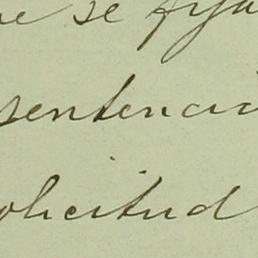 se fija
sentencia
solicitud